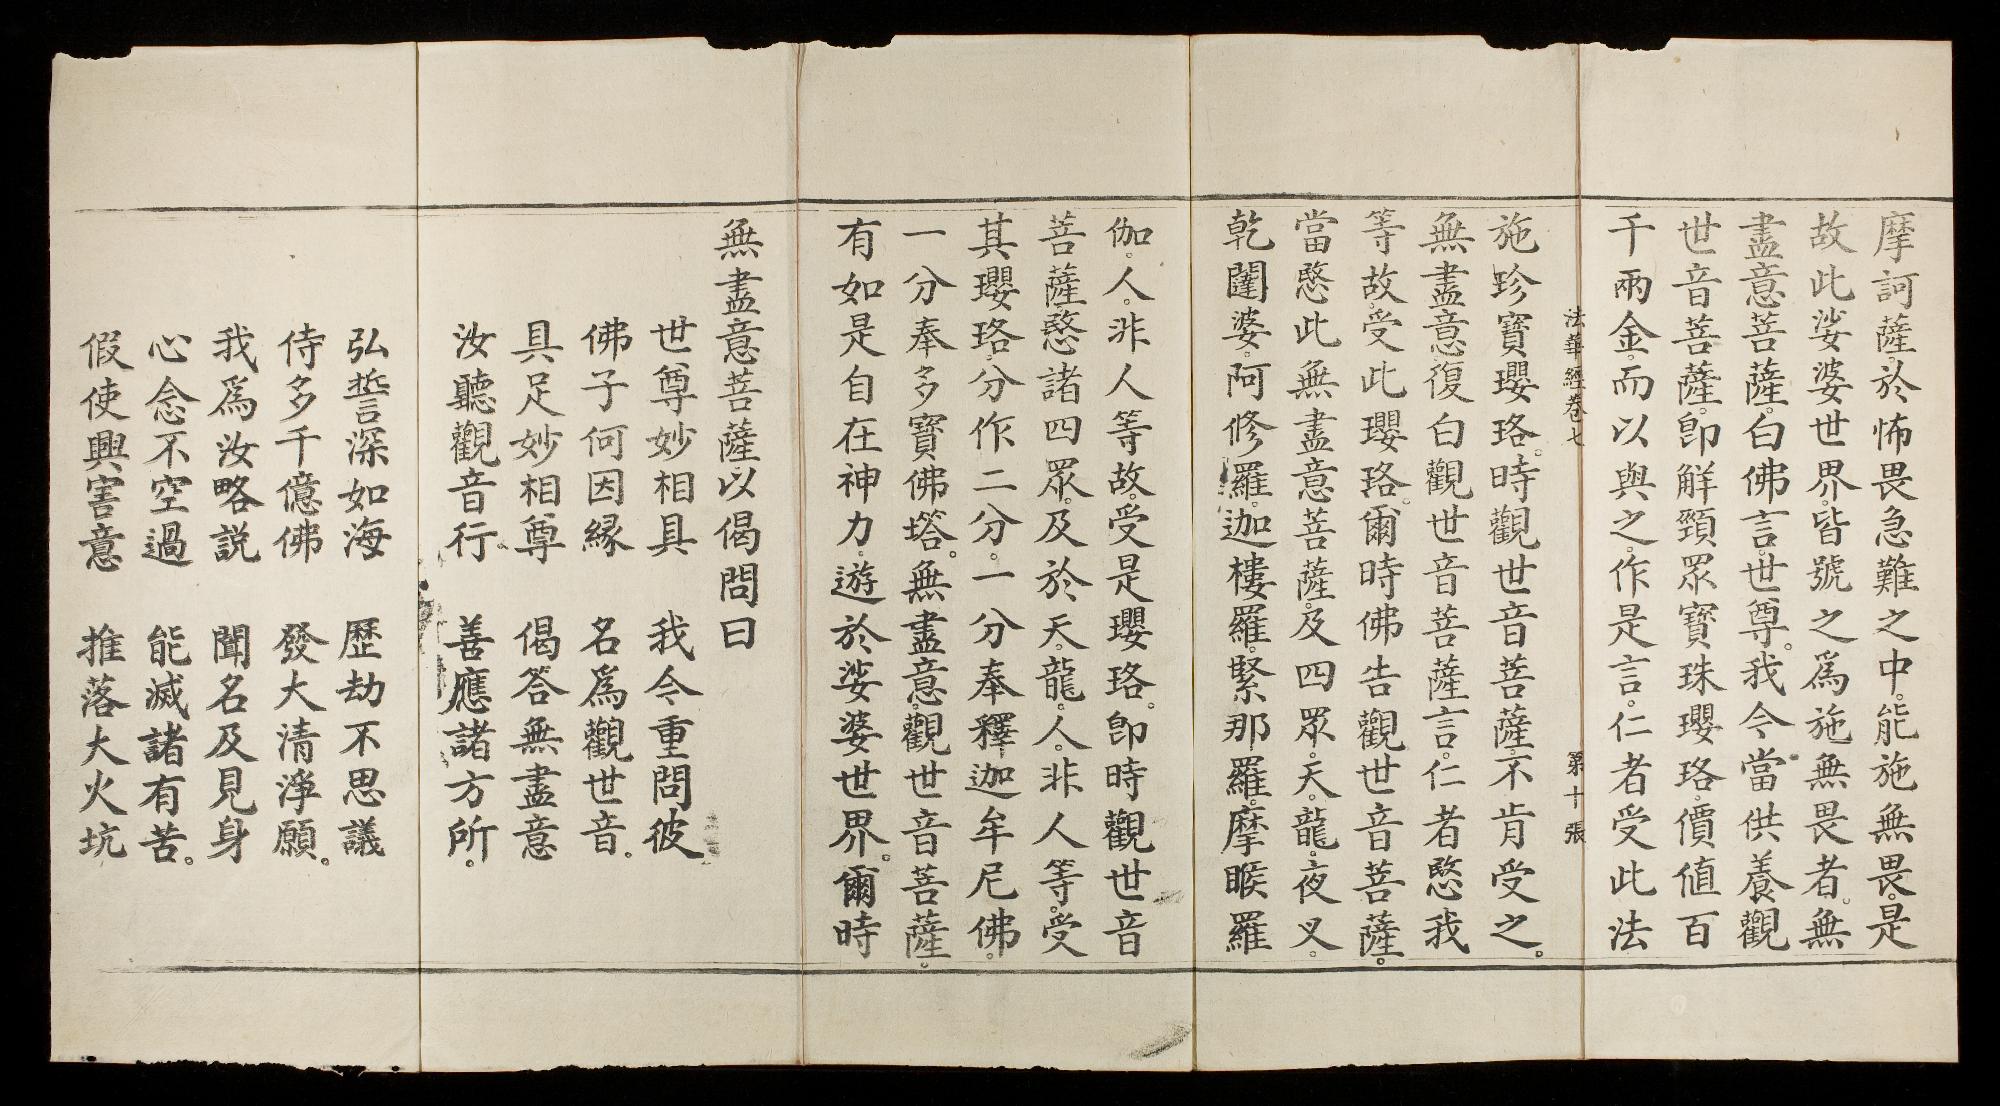 摩訶薩。於怖畏急難之中。能施無畏。是
故此娑婆世界。皆號之為施無畏者。無
盡意菩薩。白佛言。世尊。我今當供養觀
世音菩薩。即解頸眾寶珠瓔珞。價值百
千兩金。而以與之。作是言。仁者受此法
法華經卷七 第十張
施珍寶瓔珞。時觀世音菩薩。不肯受之。
無盡意復白觀世音菩薩言。仁者愍我
等故。受此瓔珞。爾時佛告觀世音菩薩。
當愍此無盡意菩薩。及四眾。天。龍。夜叉。
乾闥婆。阿修羅。迦樓羅。緊那羅。摩睺羅
伽。人。非人等故。受是瓔珞。即時觀世音
菩薩愍諸四眾。及於天。龍。人。非人等。受
其瓔珞。分作二分。一分奉釋迦牟尼佛。
一分奉多寶佛塔。無盡意。觀世音菩薩。
有如是自在神力。遊於娑婆世界。爾時
無盡意菩薩。以偈問曰
世尊妙相具 我今重問彼
佛子何因緣 名為觀世音。
具足妙相尊 偈答無盡意
汝聽觀音行 善應諸方所。
弘誓深如海 歷劫不思議
侍多千億佛 發大清淨願。
我為汝略説 聞名及見身
心念不空過 能滅諸有苦。
假使興害意 推落大火坑